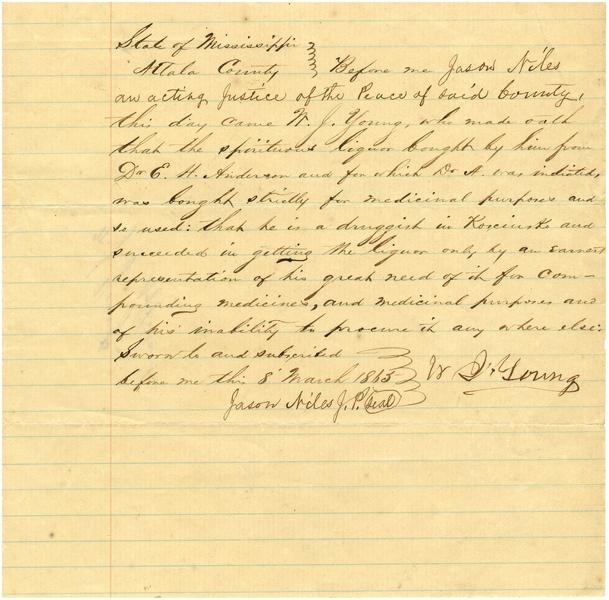 State of Mississippi
Attala County Before me Jason Niles
an acting Justice of the Peace of said County,
this day came W. J. Young, who made oath
that the spirituous liquor bought by him from
Dr E. H. Anderson and for which Dr A. was indicted,
was bought strictly for medicinal purposes and
so used: that he is a druggish in Kosciusko and
succeeded in getting the liquor only by an earnest
representation of his great need of it for com-
pounding medicines, and medicinal purposes and
of his inability to procure it any where else.
Sworn to and subscribed
before me this 8 March 1865 W J. Young
Jason Niles J. P. Seal